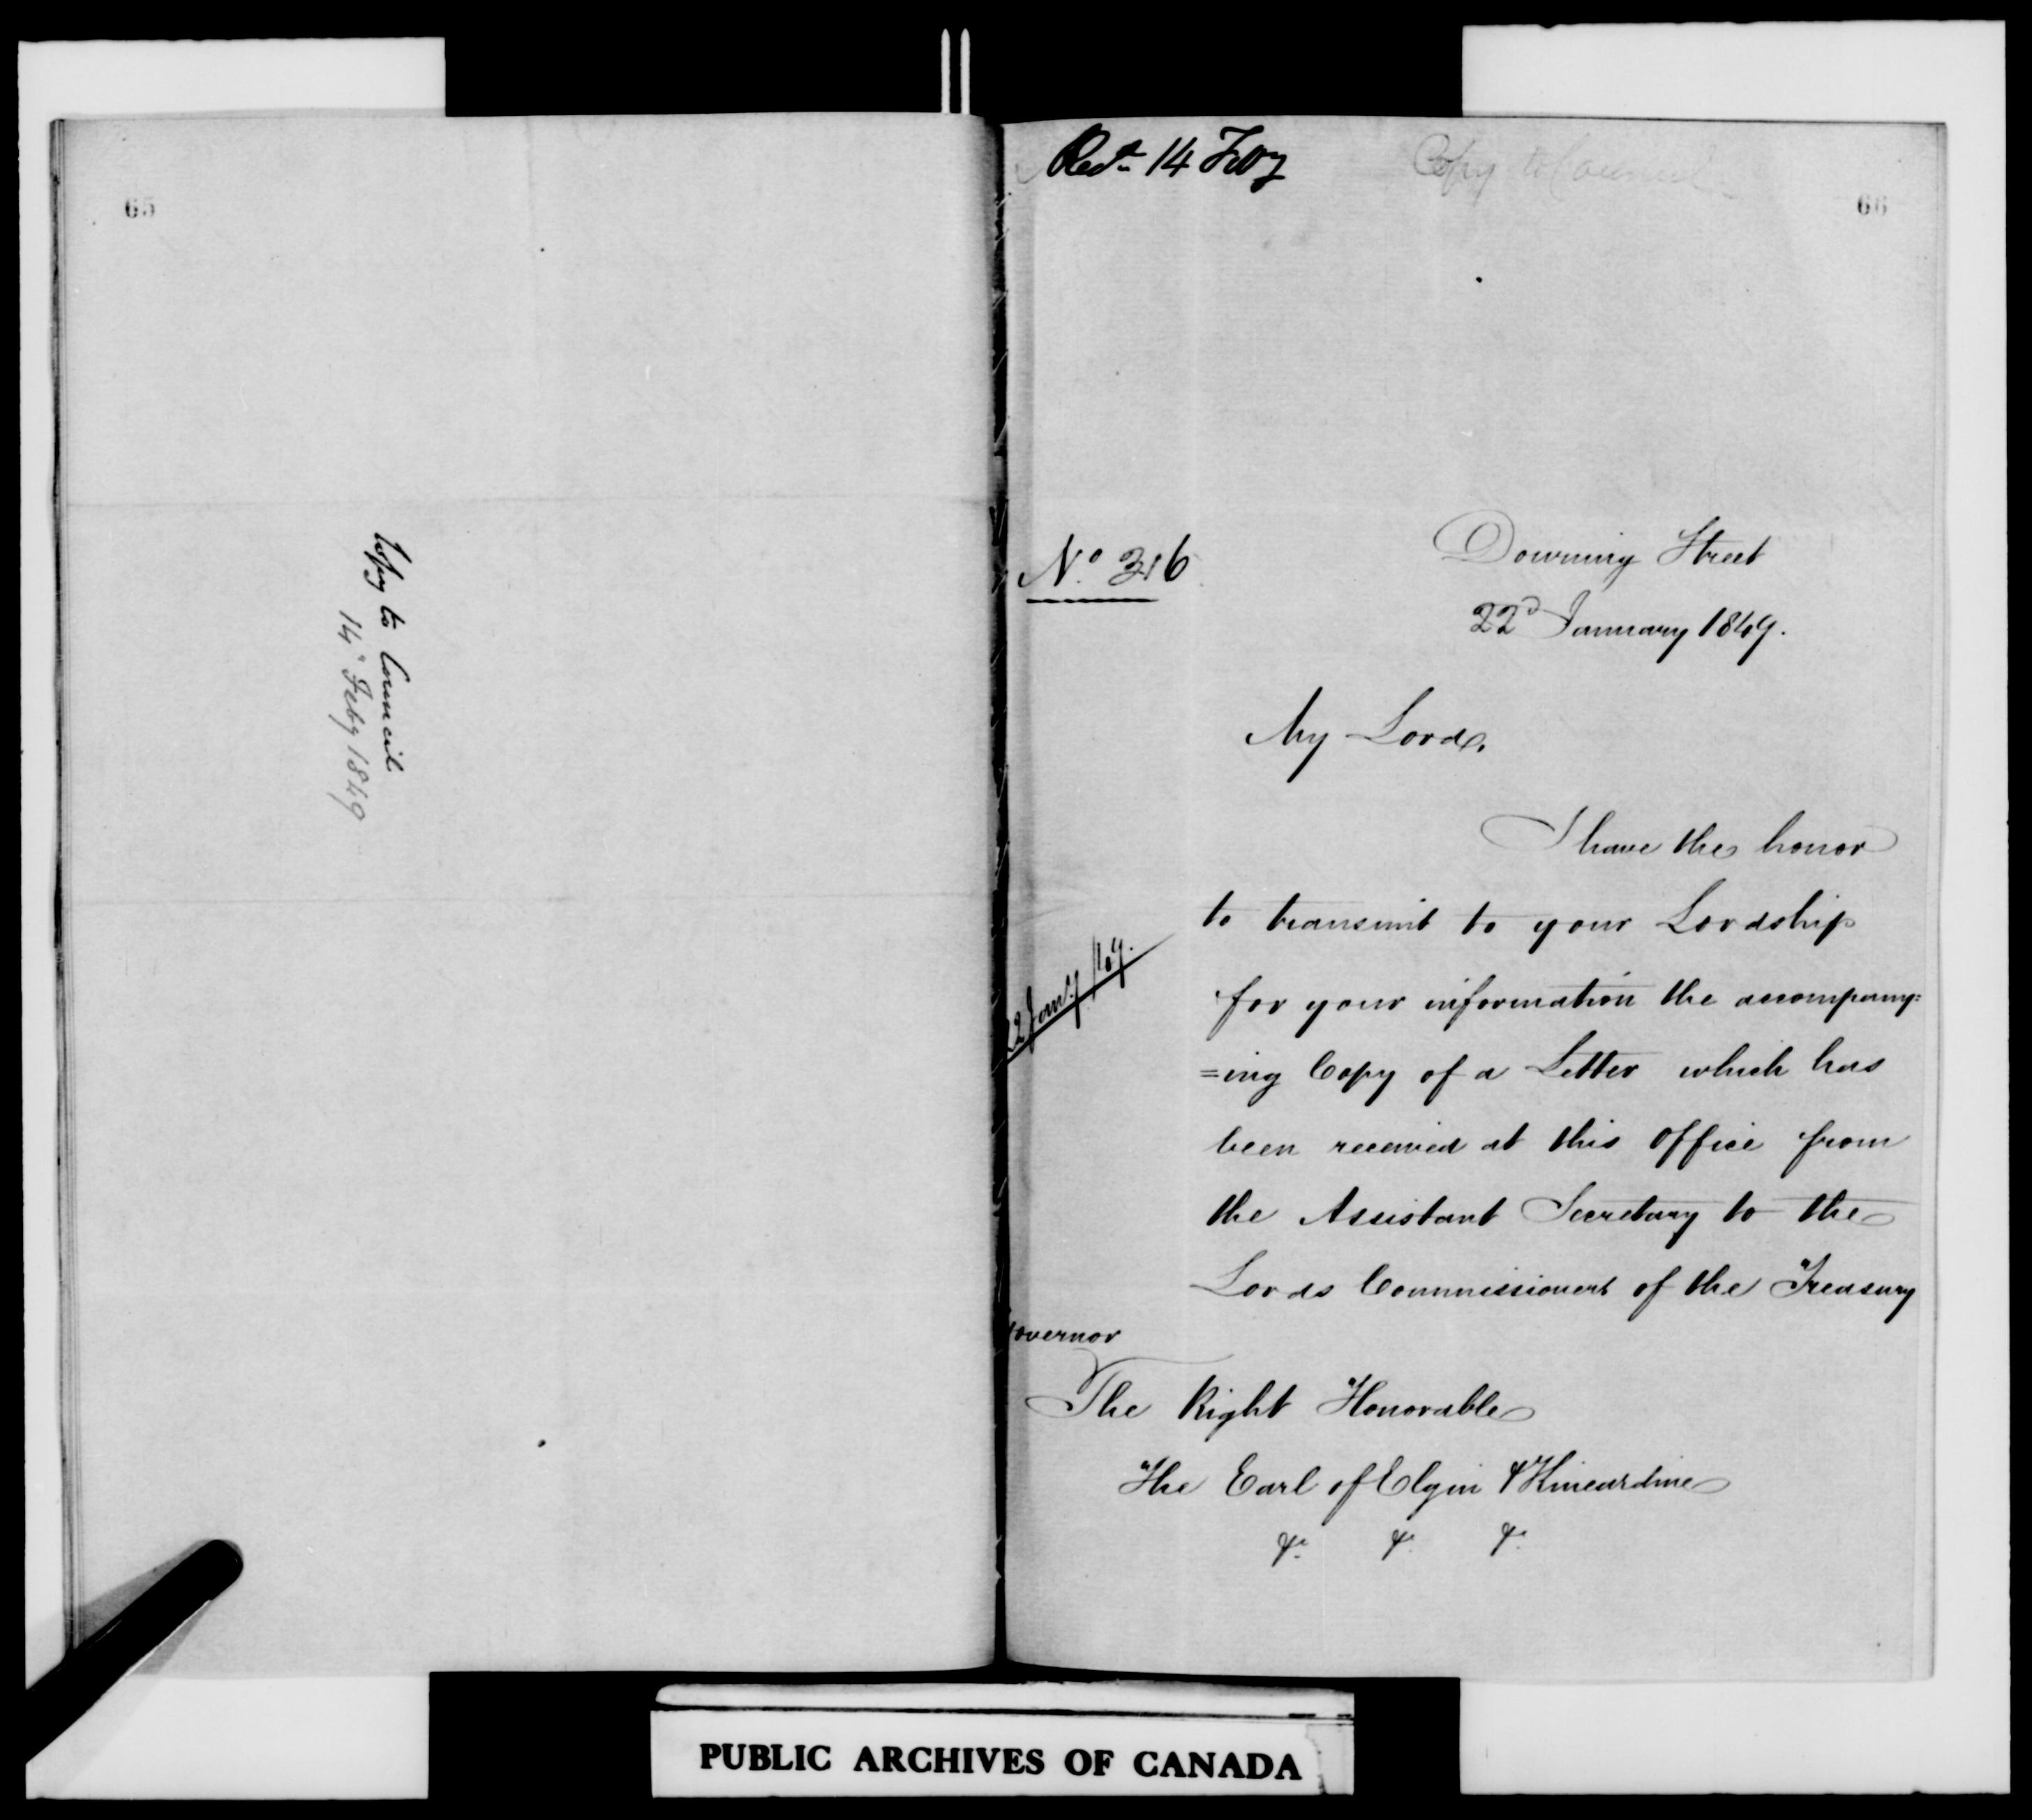 65
Copy to Council
14° Feby 1849
Recd 14 Feby
Copy to Council
66
No. 316
Downing Street
22d January 1849.
My Lord,
I have the honor
to transmit to your Lordship
for your information the accompany=
=ing Copy of a Letter which has
been received at this office from
22 Jany /49.
the Assistant Secretary to the
Lords Commissioners of the Treasury
Governor
The Right Honorable
The Earl of Elgin & Kincardine
&c. &c. &c.
PUBLIC ARCHIVES OF CANADA